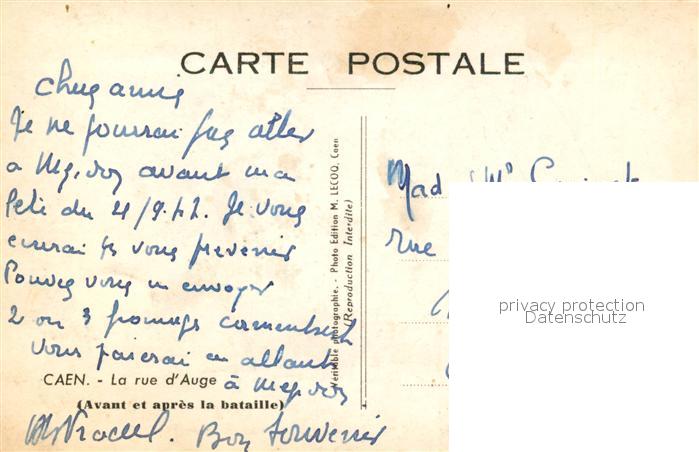 CARTE POSTALE
Chers amis
Je ne pourrai pas aller
a avant ma
du Je vous
vous prevenir
Pouvez vous m envoyer
2 ou 3 fromages camembert
vous paierai en allant
CAEN. - La rue d'Auge à
(Avant et après la bataille)
Bon souvenir
Véritable photographie. - Photo Edition M. LECOQ, Caen
(Reproduction Interdite)
Mad Mr
rue
privacy protection
Datenschutz